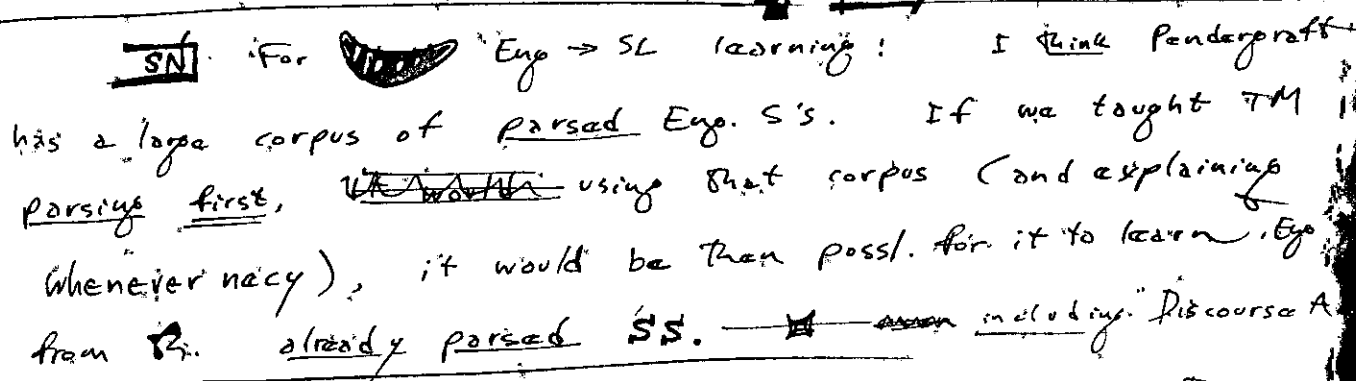 SN. For Eng → SL learning: I think Pendergraft
has a large corpus of parsed Eng. S's. If we taught TM
parsing first, using that corpus (and explaining
whenever necy), it would be then possl. for it to learn Eng
from already parsed SS. including Discourse A